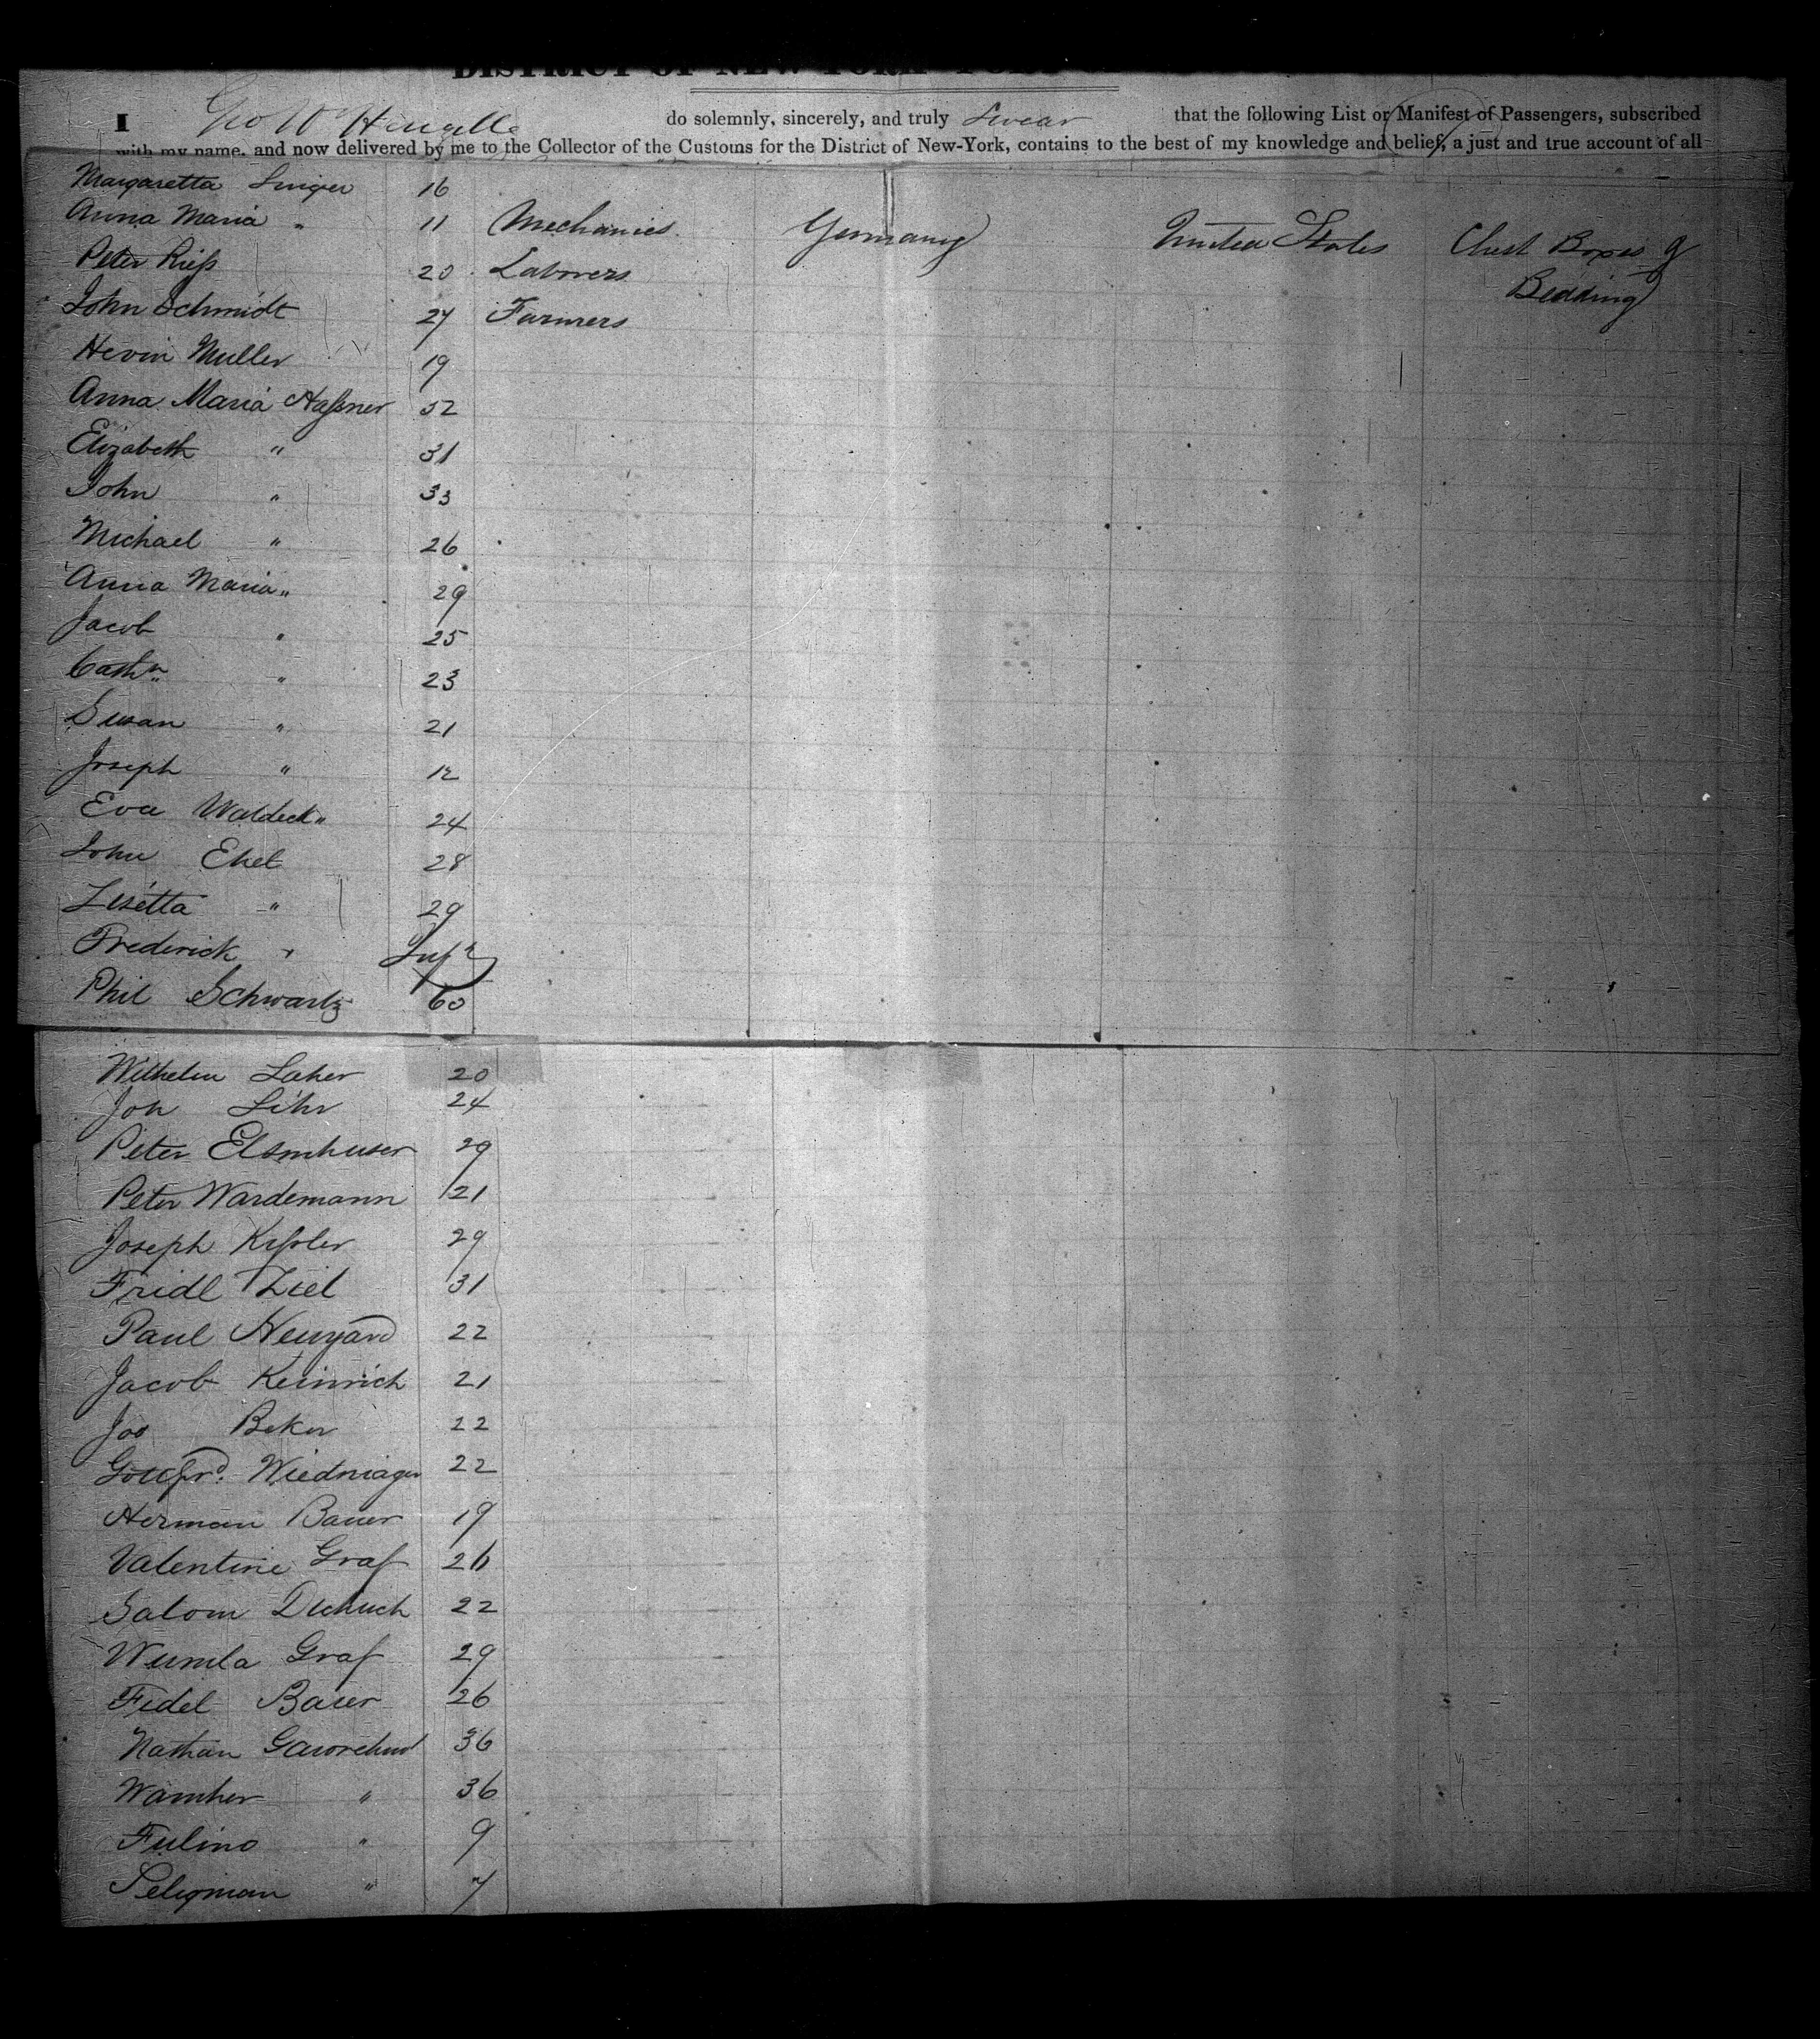 DISTRICT OF NEW-YORK
I Geo W do solemnly, sincerely, and truly Swear that the following List or Manifest of Passengers, subscribed
with my name, and now delivered by me to the Collector of the Customs for the District of New-York, contains to the best of my knowledge and belief, a just and true account of all
Margaretta Singer 16
Anna Maria " 11 Mechanics Germany United States Chest Boxes &
Peter Rieß 20 Laborers Bedding
John Schmidt 27 Farmers
Muller 19
Anna Maria Haßner 52
Elizabeth " 31
John " 33
Michael " 26
Anna Maria " 29
Jacob " 25
Cathn " 23
Susan " 21
Joseph " 12
Eva Waldeck " 24
John Ekel 28
Lisetta " 29
Frederick " Inft
Phil Schwartz 60
Wilhelm Laher 20
Joh Lihr 24
Peter Elsmhuser 29
Peter Wardemann 21
Joseph Keßler 29
Fridl Ziel 31
Paul 22
Jacob Keinrich 21
Jos Beker 22
Gottfrd. 22
Herman Bauer 19
Valentine Graf 26
Salom 22
Graf 29
Fidel Bauer 26
Nathan 36
36
9
Seligman " 7